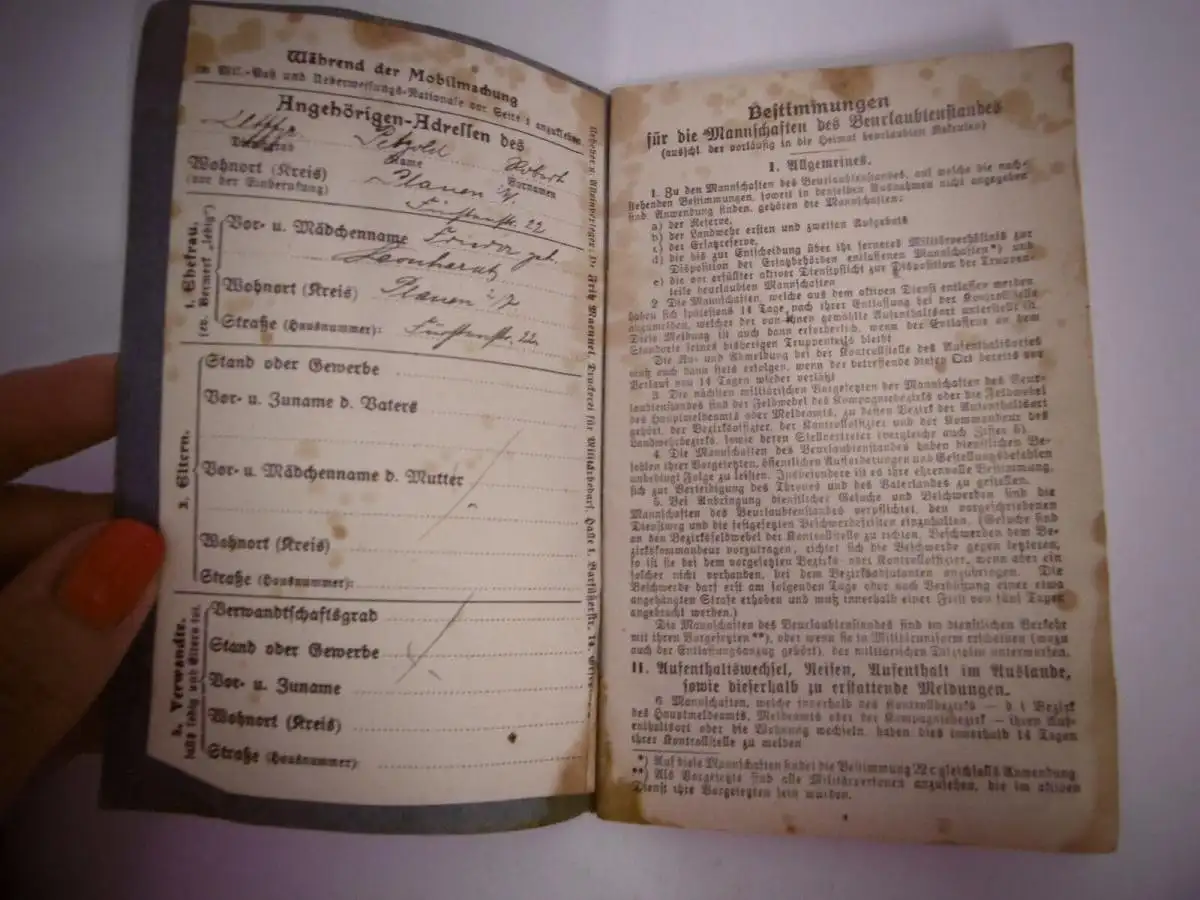 Während der Mobilmachung
im Mil.-Paß und Ueberweisungs-Nationale vor Seite 1 anzukleben
Angehörigen-Adressen des
Petzold Robert
Dienstgrad Name Vornamen
Wohnort (Kreis) Plauen i/V.
(vor der Einberufung) Fürstenstr. 22
1. Ehefrau.
(ev. Vermerk „ledig")
Vor- u. Mädchenname Frieda geb.
Leonhardt
Wohnort (Kreis) Plauen i/V
Straße (Hausnummer): Fürstenstr. 22.
2. Eltern.
Stand oder Gewerbe
Vor- u. Zuname d. Vaters
Vor- u. Mädchenname d. Mutter
Wohnort (Kreis)
Straße (Hausnummer):
3. Verwandte.
falls ledig und Eltern tot
Verwandtschaftsgrad
Stand oder Gewerbe
Vor- u. Zuname
Wohnort (Kreis)
Straße (Hausnummer)
Druckerei für Militärbedarf, Halle
Bestimmungen
für die Mannschaften des Beurlaubtenstandes
(ausschl. der vorläufig in die Heimat beurlaubten Rekruten)
I. Allgemeines.
1. Zu den Mannschaften des Beurlaubtenstandes, auf welche die nach-
stehenden Bestimmungen, soweit in denselben Ausnahmen nicht angegeben
sind, Anwendung finden, gehören die Mannschaften:
a) der Reserve,
b) der Landwehr ersten und zweiten Aufgebots
c) der Ersatzreserve,
d) die bis zur Entscheidung über ihr ferneres Militärverhältnis zur
Disposition der Ersatzbehörden entlassenen Mannschaften*) und
e) die vor erfüllter aktiver Dienstpflicht zur Disposition der Truppen-
teile beurlaubten Mannschaften
2. Die Mannschaften, welche aus dem aktiven Dienst entlassen werden
haben sich spätestens 14 Tage nach ihrer Entlassung bei der Kontrollstelle
anzumelden, welcher der von ihnen gewählte Aufenthaltsort unterstellt ist
Diese Meldung ist auch dann erforderlich, wenn der Entlassene an dem
Standorte seines bisherigen Truppenteils bleibt
Die An- und Abmeldung bei der Kontrollstelle des Aufenthaltsortes
muß auch dann stets erfolgen, wenn der betreffende diesen Ort bereits vor
Verlauf von 14 Tagen wieder verläßt
3. Die nächsten militärischen Vorgesetzten der Mannschaften des Beur-
laubtenstandes sind der Feldwebel des Kompagniebezirks oder die Feldwebel
des Hauptmeldeamts oder Meldeamts, zu dessen Bezirk der Aufenthaltsort
gehört, der Bezirksoffizier, der Kontrolloffizier und der Kommandeur des
Landwehrbezirks, sowie deren Stellvertreter (vergleiche auch Ziffer 5).
4. Die Mannschaften des Beurlaubtenstandes haben dienstlichen Be-
fehlen ihrer Vorgesetzten, öffentlichen Aufforderungen und Gestellungsbefehlen
unbedingt Folge zu leisten. Insbesondere ist es ihre ehrenvolle Bestimmung,
sich zur Verteidigung des Thrones und des Vaterlandes zu gestellen.
5. Bei Anbringung dienstlicher Gesuche und Beschwerden sind die
Mannschaften des Beurlaubtenstandes verpflichtet, den vorgeschriebenen
Dienstweg und die festgesetzten Beschwerdefristen einzuhalten. (Gesuche sind
an den Bezirksfeldwebel der Kontrollstelle zu richten, Beschwerden dem Be-
zirkskommandeur vorzutragen, richtet sich die Beschwerde gegen letzteren,
so ist sie bei dem vorgesetzten Bezirks- oder Kontrolloffizier, wenn aber ein
solcher nicht vorhanden, bei dem Bezirksadjutanten anzubringen. Die
Beschwerde darf erst am folgenden Tage oder nach Verbüßung einer etwa
angehängten Strafe erhoben und muß innerhalb einer Frist von fünf Tagen
angebracht werden.)
Die Mannschaften des Beurlaubtenstandes sind im dienstlichen Verkehr
mit ihren Vorgesetzten**), oder wenn sie in Militäruniform erscheinen (wozu
auch der Entlassungsanzug gehört), der militärischen Disziplin unterworfen.
II. Aufenthaltswechsel, Reisen, Aufenthalt im Auslande,
sowie dieserhalb zu erstattende Meldungen.
6 Mannschaften, welche innerhalb des Kontrollbezirks — d. i Bezirk
des Hauptmeldeamts, Meldeamts oder der Kompagniebezirk — ihren Auf-
enthaltsort oder die Wohnung wechseln, haben dies innerhalb 14 Tagen
ihrer Kontrollstelle zu melden
*) Auf diese Mannschaften findet die Bestimmung gleichfalls Anwendung
**) Als Vorgesetzte sind alle Militärpersonen anzusehen, die im aktiven
Dienst ihre Vorgesetzten sein würden.